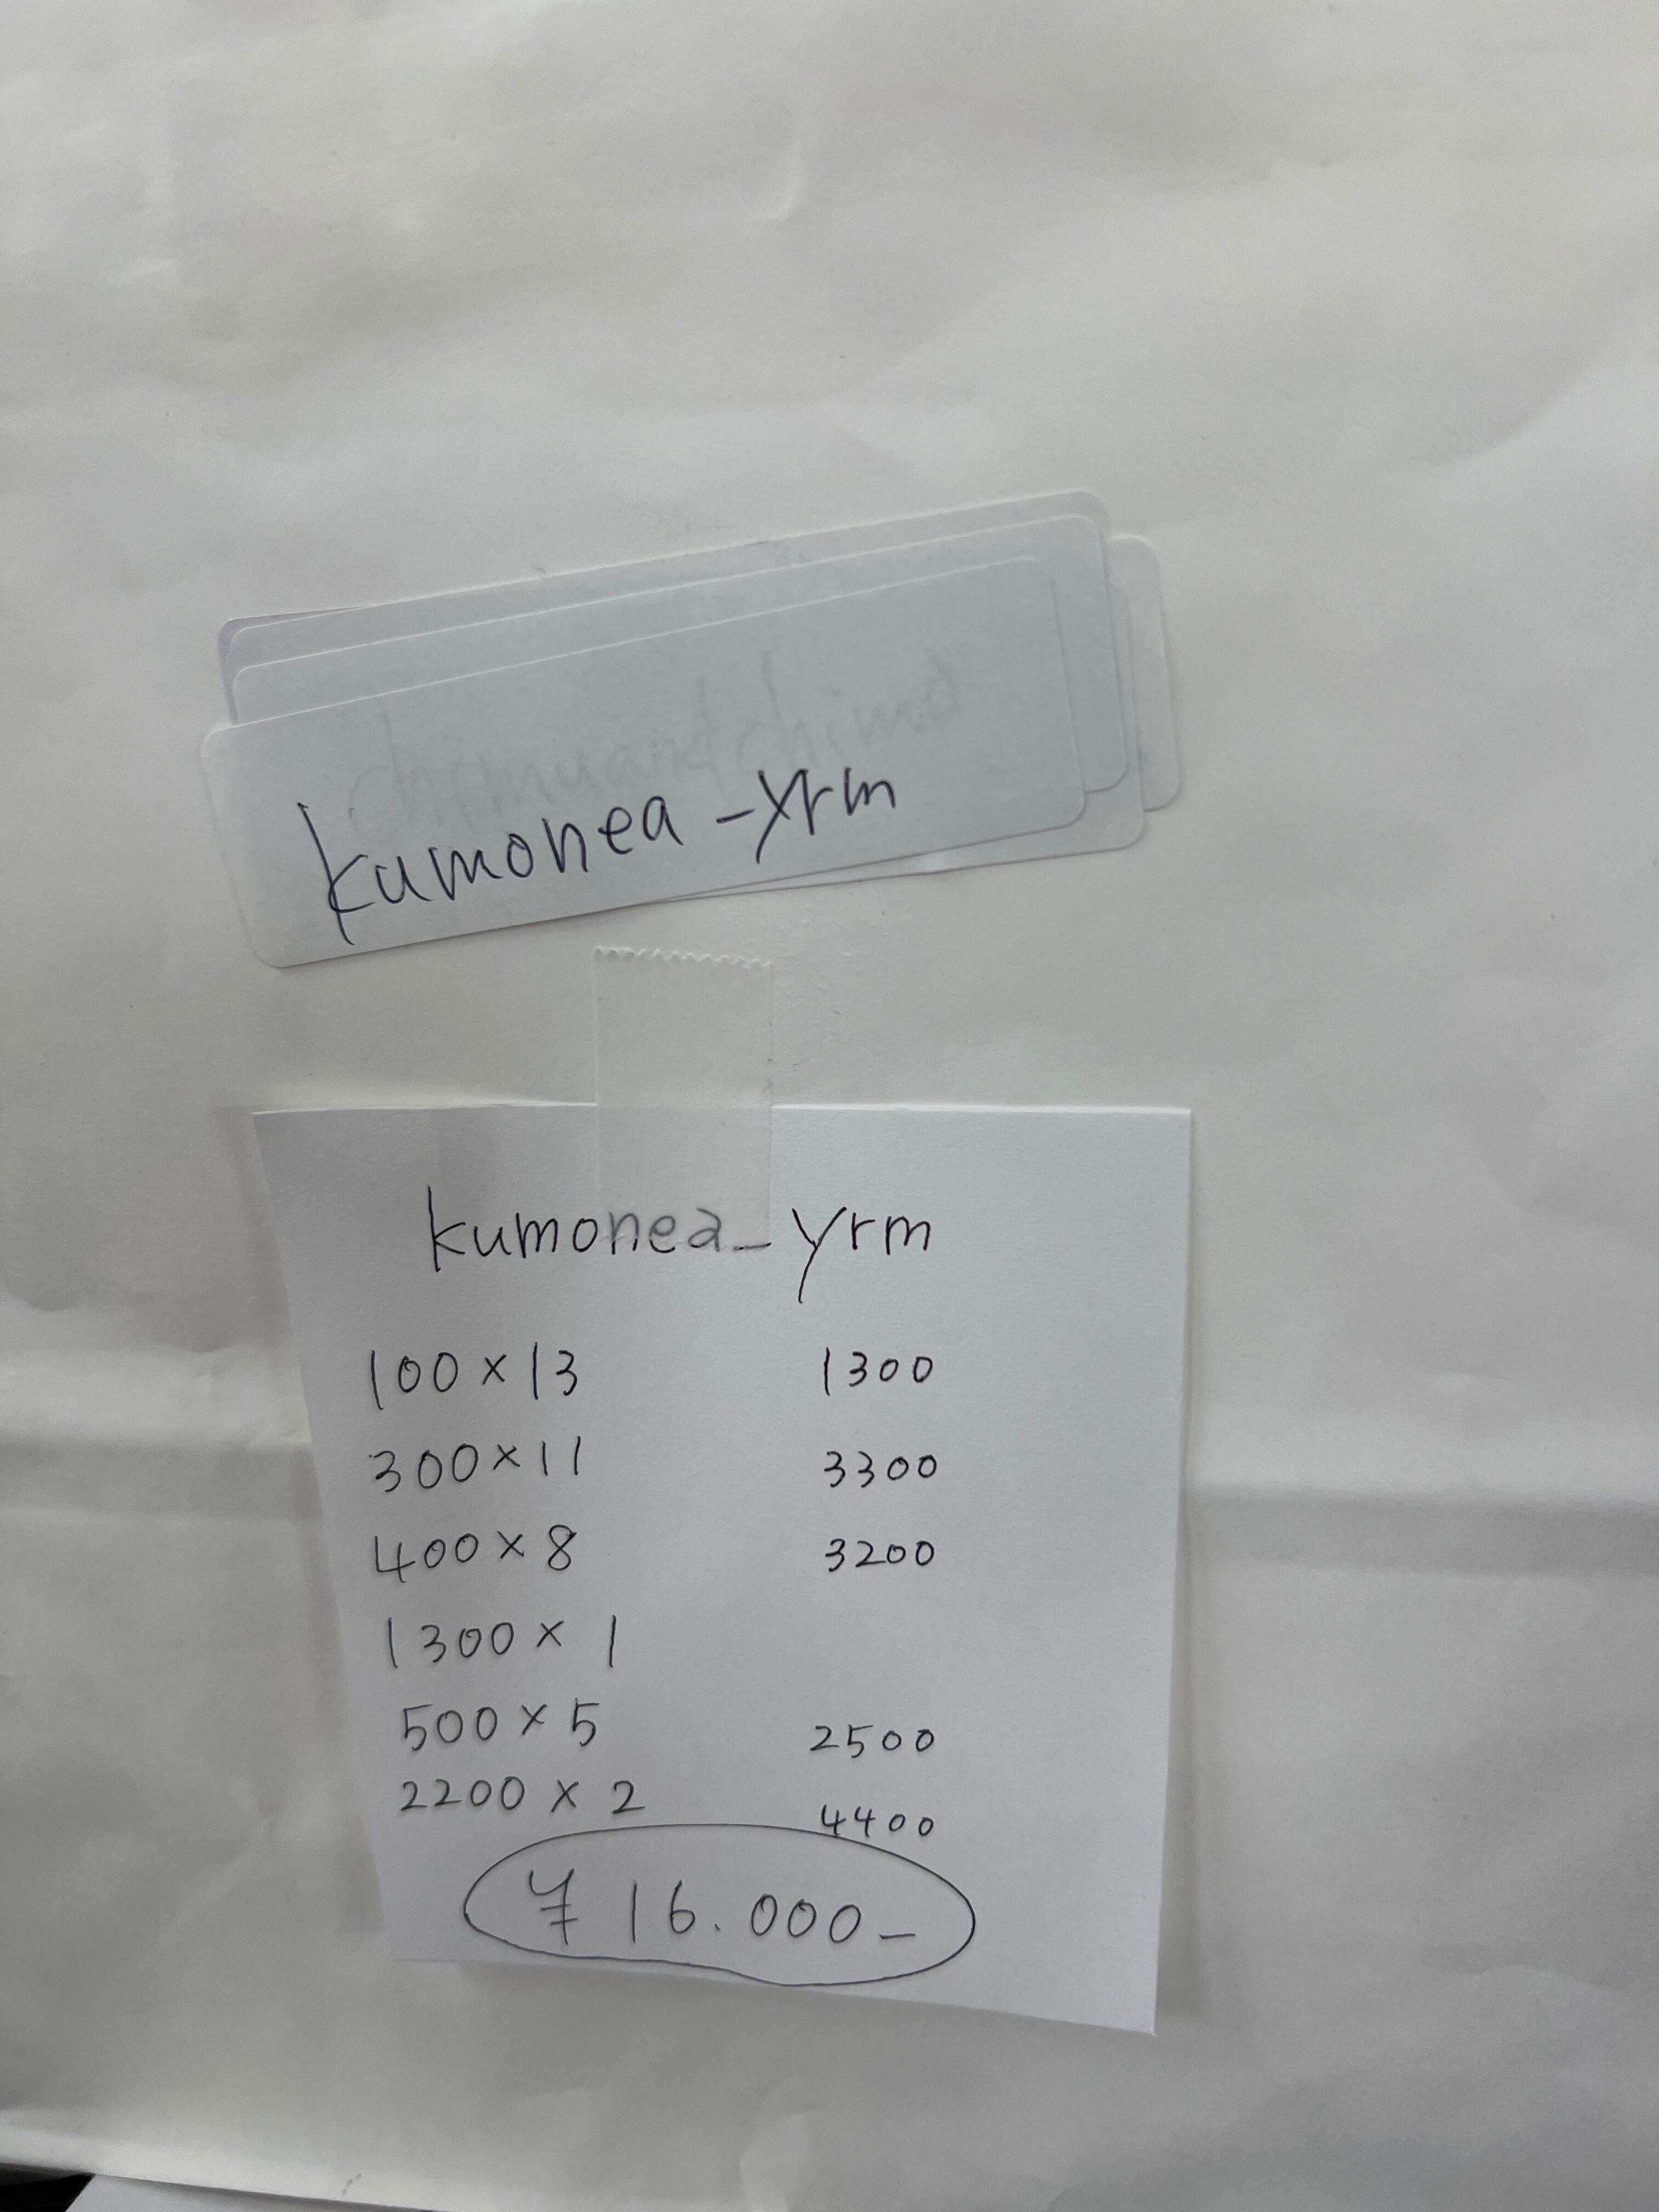 chimuandchimu
kumonea-yrm
kumonea_yrm
100×13 1300
300×11 3300
400×8 3200
1300×1
500×5 2500
2200×2 4400
¥16.000-